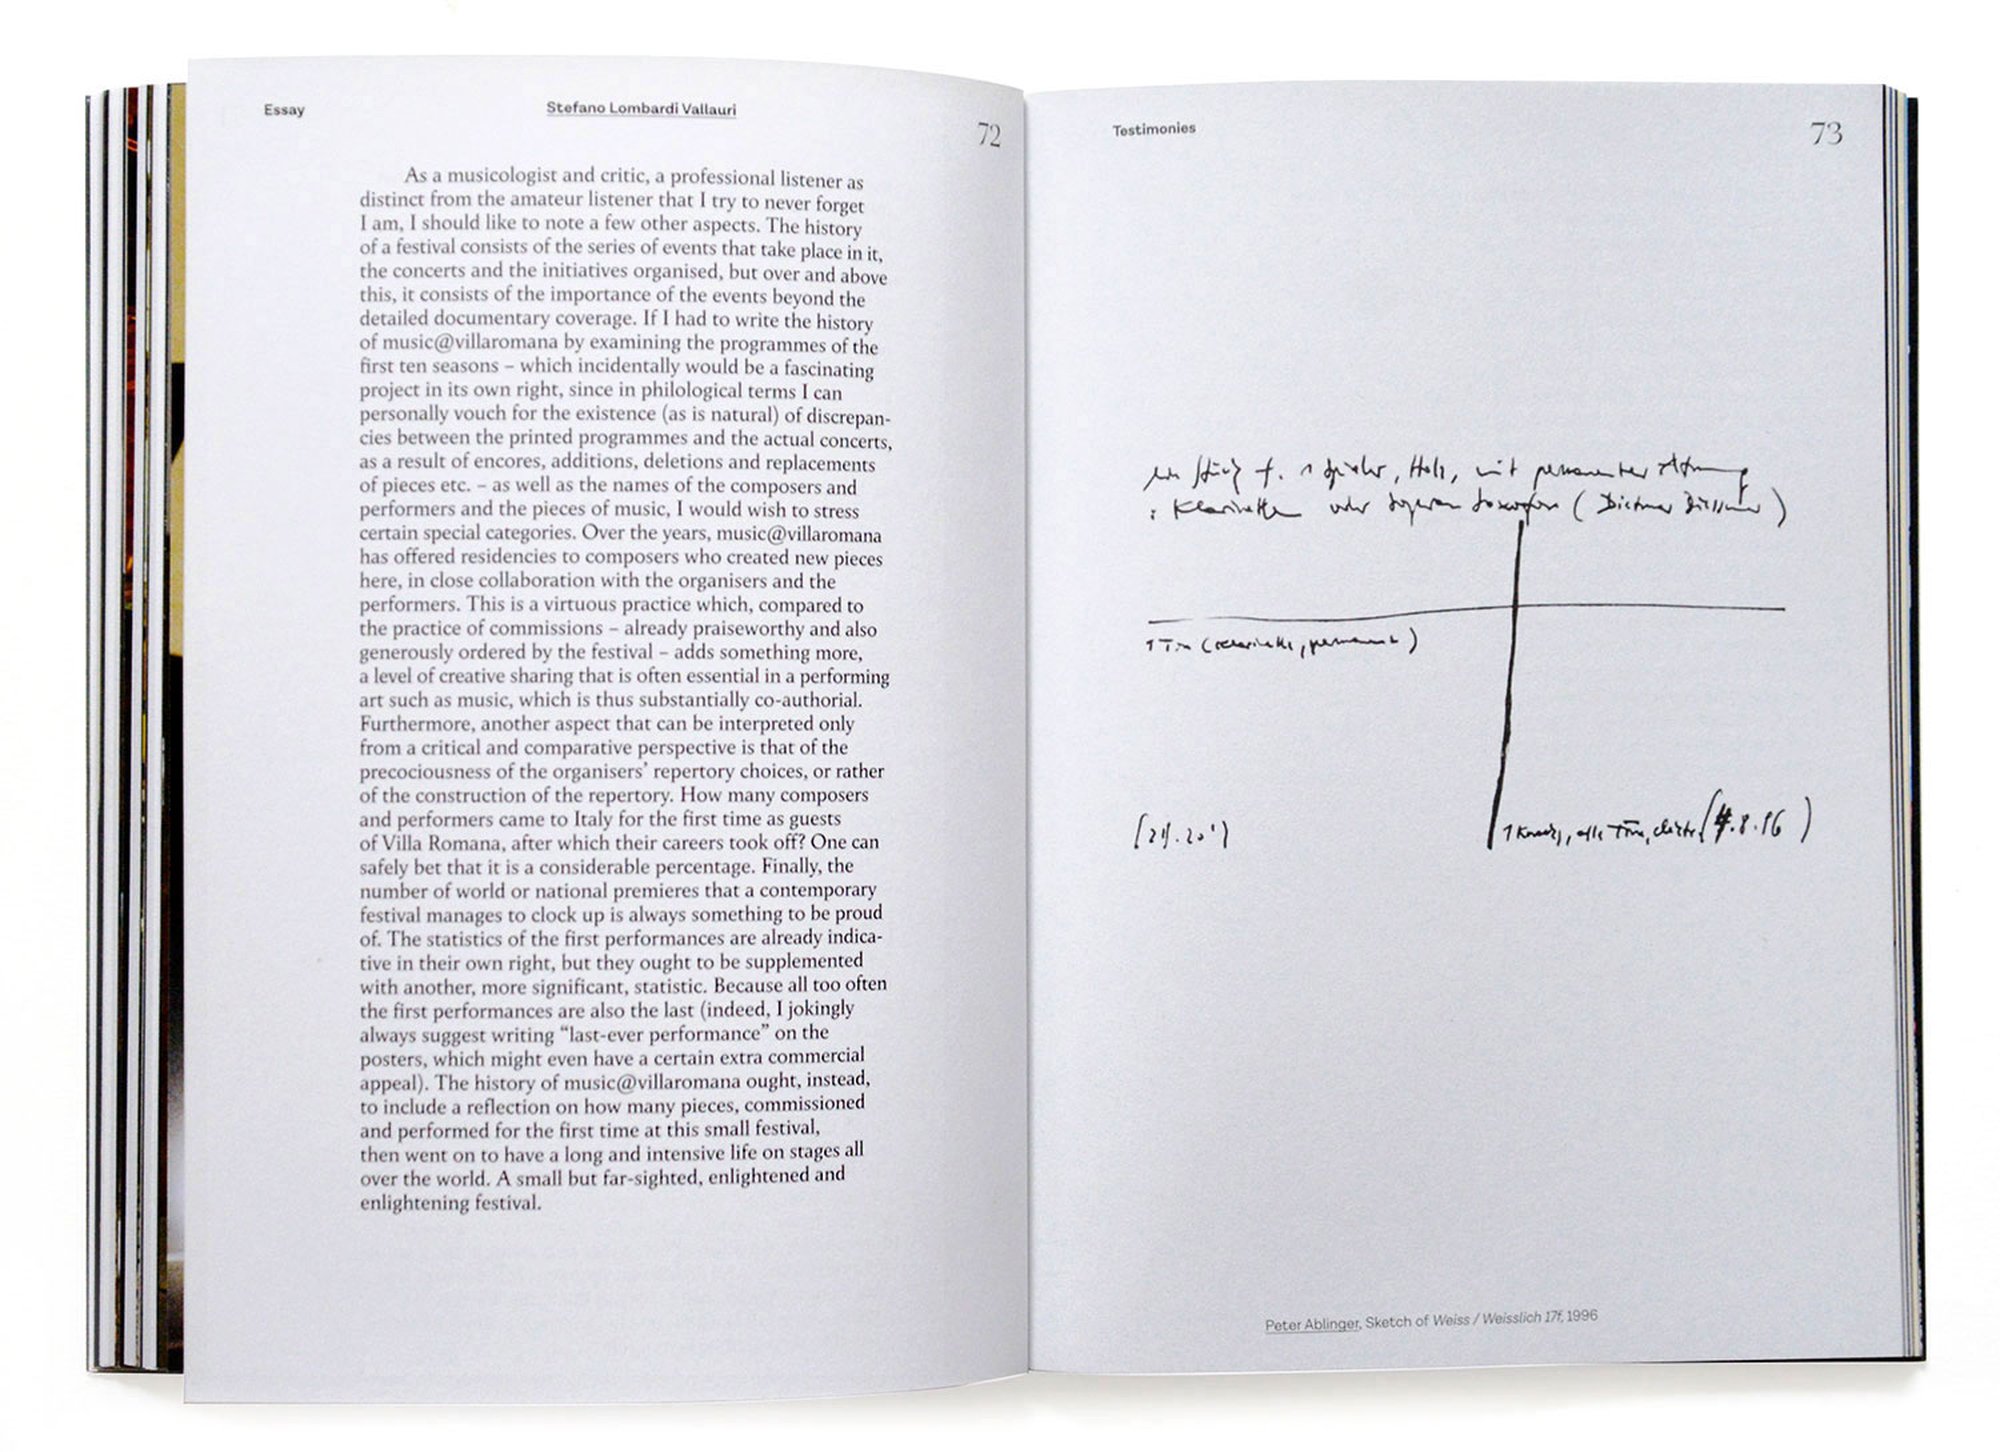 Essay
Stefano Lombardi Vallauri
72
As a musicologist and critic, a professional listener as
distinct from the amateur listener that I try to never forget
I am, I should like to note a few other aspects. The history
of a festival consists of the series of events that take place in it,
the concerts and the initiatives organised, but over and above
this, it consists of the importance of the events beyond the
detailed documentary coverage. If I had to write the history
of music@villaromana by examining the programmes of the
first ten seasons – which incidentally would be a fascinating
project in its own right, since in philological terms I can
personally vouch for the existence (as is natural) of discrepan-
cies between the printed programmes and the actual concerts,
as a result of encores, additions, deletions and replacements
of pieces etc. – as well as the names of the composers and
performers and the pieces of music, I would wish to stress
certain special categories. Over the years, music@villaromana
has offered residencies to composers who created new pieces
here, in close collaboration with the organisers and the
performers. This is a virtuous practice which, compared to
the practice of commissions – already praiseworthy and also
generously ordered by the festival – adds something more,
a level of creative sharing that is often essential in a performing
art such as music, which is thus substantially co-authorial.
Furthermore, another aspect that can be interpreted only
from a critical and comparative perspective is that of the
precociousness of the organisers’ repertory choices, or rather
of the construction of the repertory. How many composers
and performers came to Italy for the first time as guests
of Villa Romana, after which their careers took off? One can
safely bet that it is a considerable percentage. Finally, the
number of world or national premieres that a contemporary
festival manages to clock up is always something to be proud
of. The statistics of the first performances are already indica-
tive in their own right, but they ought to be supplemented
with another, more significant, statistic. Because all too often
the first performances are also the last (indeed, I jokingly
always suggest writing “last-ever performance” on the
posters, which might even have a certain extra commercial
appeal). The history of music@villaromana ought, instead,
to include a reflection on how many pieces, commissioned
and performed for the first time at this small festival,
then went on to have a long and intensive life on stages all
over the world. A small but far-sighted, enlightened and
enlightening festival.
Testimonies
73
ein Stück f. 1 Spieler, Holz, mit permanenter Atmung
: Klarinette oder Sopran Saxofon (Dietmar
1 Ton (Klarinette, permanent)
1 alle Töne,
.8.96)
Peter Ablinger, Sketch of Weiss / Weisslich 17f, 1996